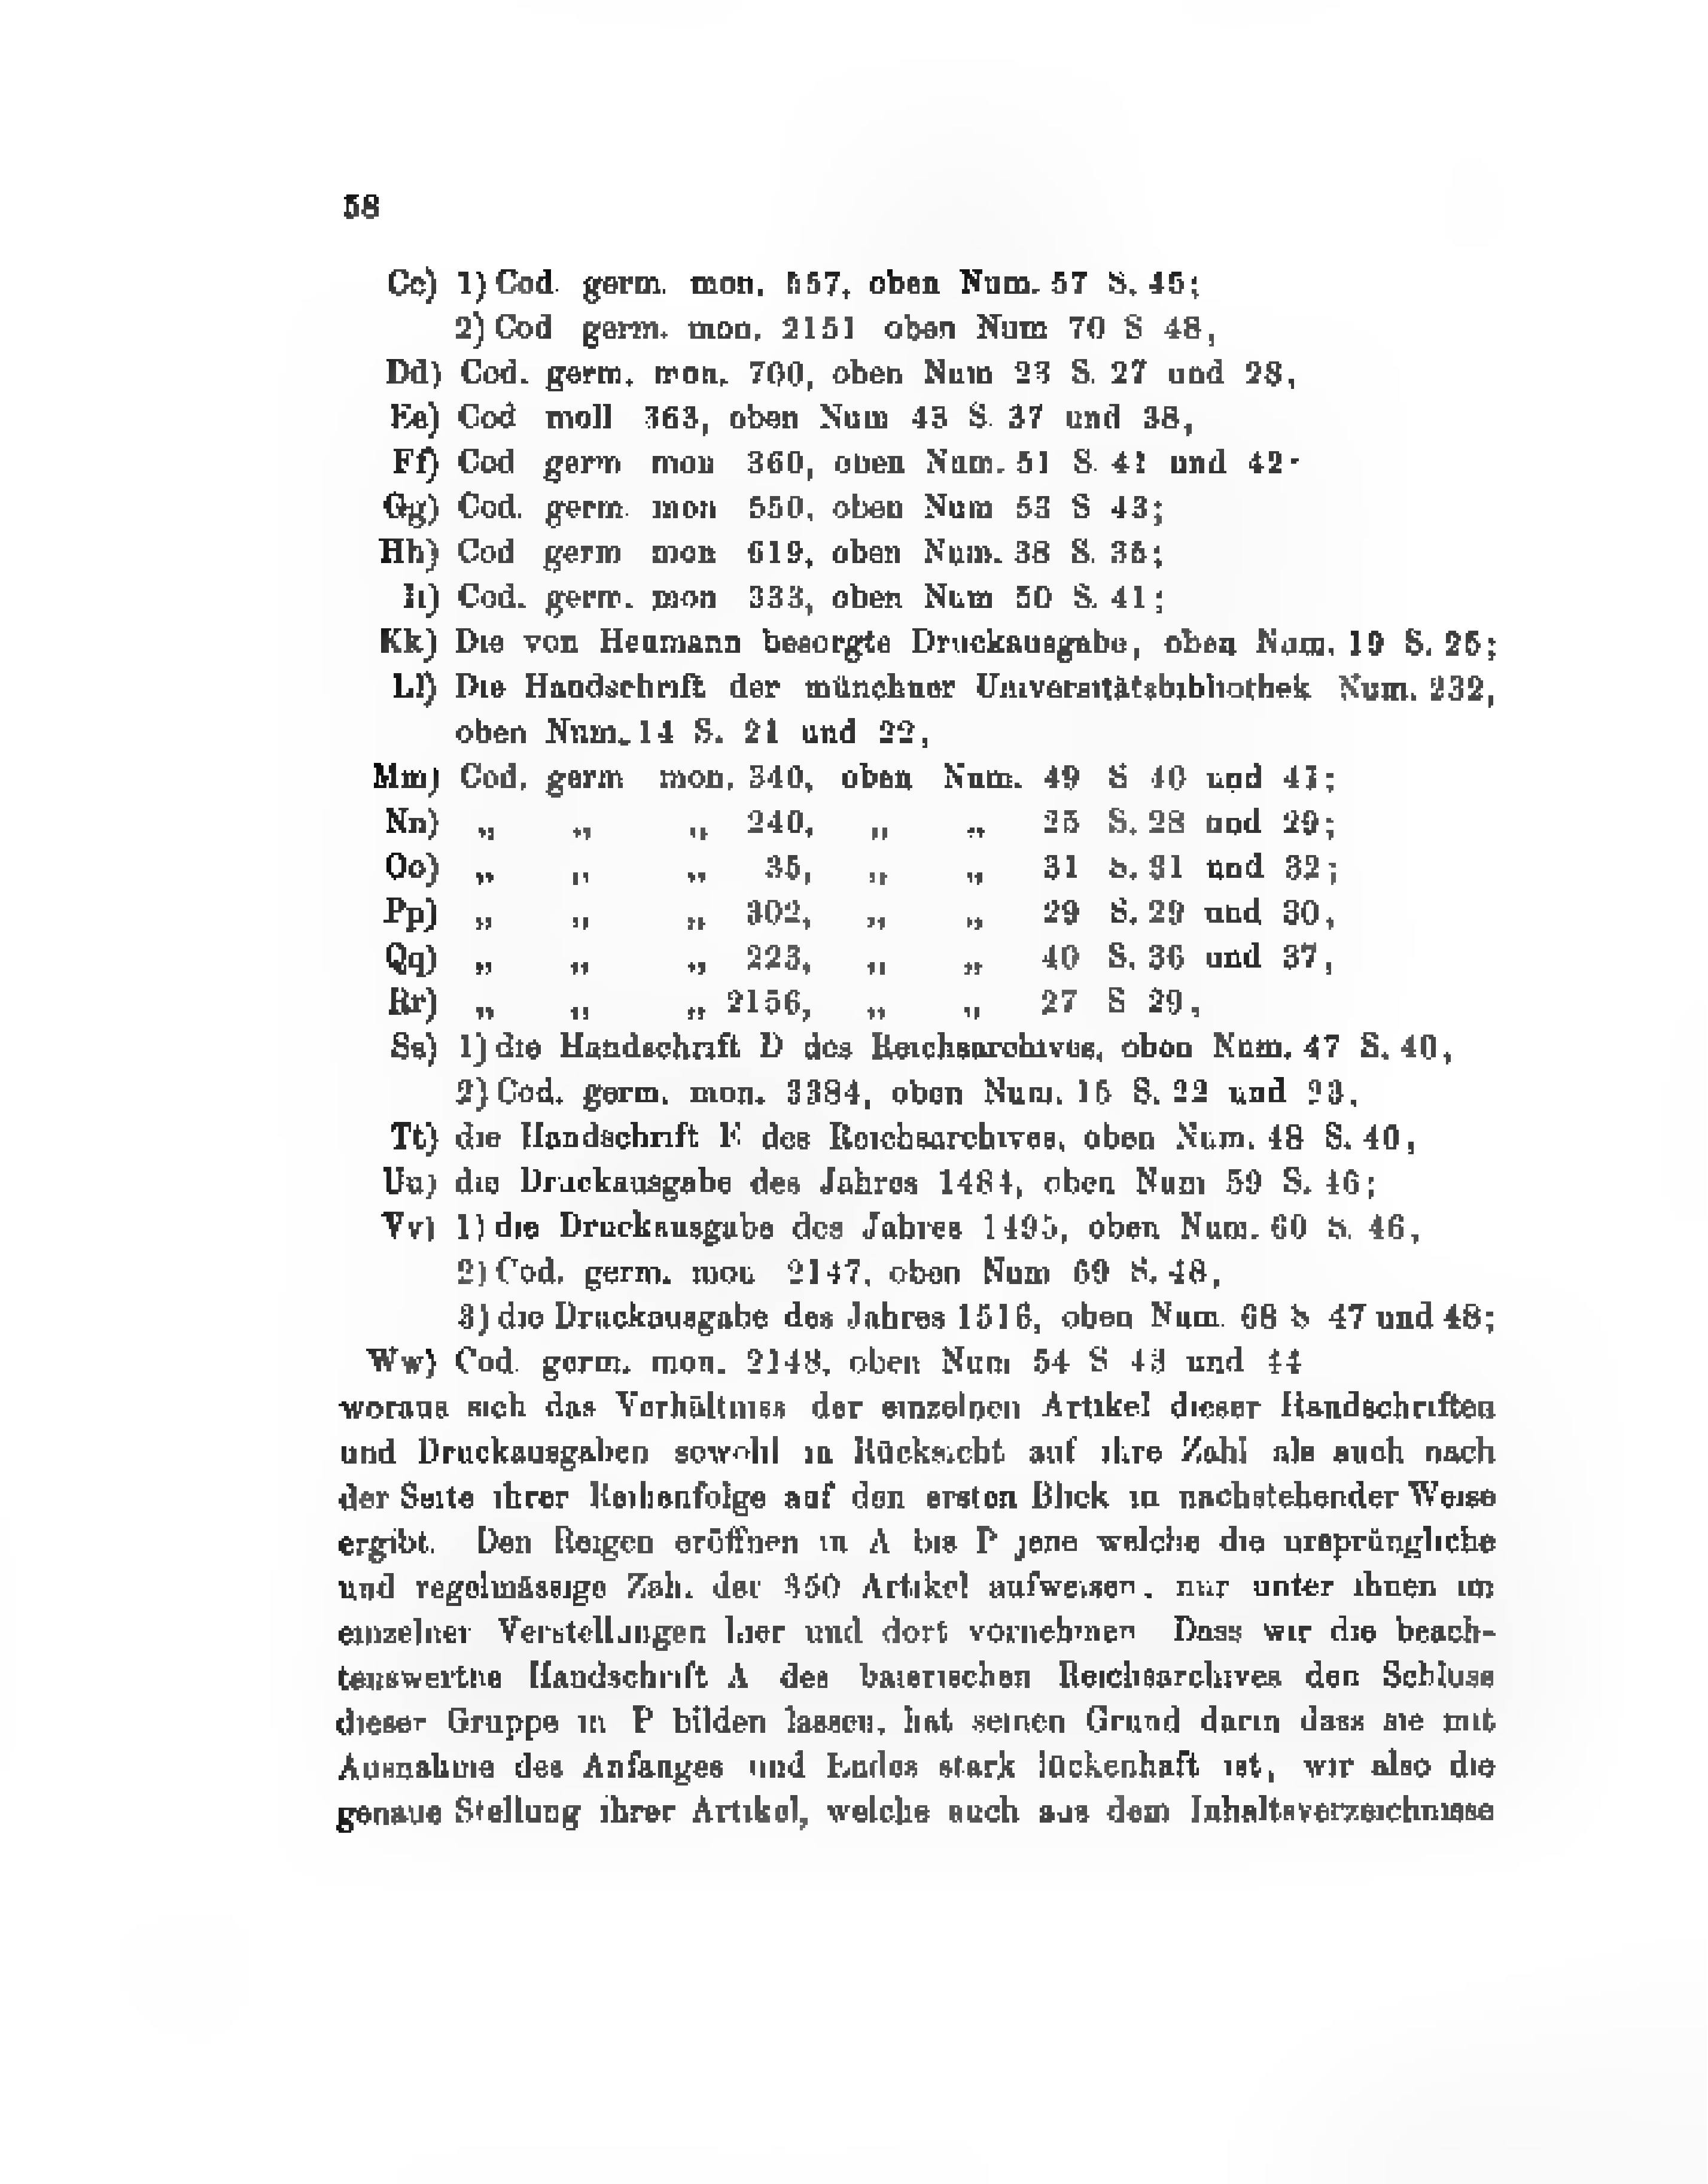 58
Cc) 1) Cod. germ. mon. 557, oben Num. 57 S. 45;
2) Cod germ. mon. 2151 oben Num 70 S 48,
Dd) Cod. germ. mon. 700, oben Num 23 S. 27 und 28,
Ee) Cod moll 363, oben Num 43 S. 37 und 38,
Ff) Cod germ mon 360, oben Num. 51 S. 41 und 42·
Gg) Cod. germ. mon 550, oben Num 53 S 43;
Hh) Cod germ mon 619, oben Num. 38 S. 35;
Ii) Cod. germ. mon 333, oben Num 50 S. 41;
Kk) Die von Heumann besorgte Druckausgabe, oben Num. 19 S. 25;
Ll) Die Handschrift der münchner Universitätsbibliothek Num. 232,
oben Num. 14 S. 21 und 22,
Mm) Cod. germ mon. 340, oben Num. 49 S 40 und 41;
Nn) „ „ „ 240, „ „ 25 S. 28 und 29;
Oo) „ „ „ 35, „ „ 31 S. 31 und 32;
Pp) „ „ „ 302, „ „ 29 S. 29 und 30,
Qq) „ „ „ 223, „ „ 40 S. 36 und 37,
Rr) „ „ „ 2156, „ „ 27 S 29,
Ss) 1) die Handschrift D des Reichsarchives, oben Num. 47 S. 40,
2) Cod. germ. mon. 3384, oben Num. 15 S. 22 und 23,
Tt) die Handschrift E des Reichsarchives, oben Num. 48 S. 40,
Uu) die Druckausgabe des Jahres 1484, oben Num 59 S. 46;
Vv) 1) die Druckausgabe des Jahres 1495, oben Num. 60 S. 46,
2) Cod. germ. mon 2147, oben Num 69 S. 48,
3) die Druckausgabe des Jahres 1516, oben Num. 68 S 47 und 48;
Ww) Cod. germ. mon. 2148, oben Num 54 S 43 und 44
woraus sich das Verhältniss der einzelnen Artikel dieser Handschriften
und Druckausgaben sowohl in Rücksicht auf ihre Zahl als auch nach
der Seite ihrer Reihenfolge auf den ersten Blick in nachstehender Weise
ergibt. Den Reigen eröffnen in A bis P jene welche die ursprüngliche
und regelmässige Zahl der 350 Artikel aufweisen, nur unter ihnen im
einzelnen Verstellungen hier und dort vornehmen Dass wir die beach-
tenswerthe Handschrift A des baierischen Reichsarchives den Schluss
dieser Gruppe in P bilden lassen, hat seinen Grund darin dass sie mit
Ausnahme des Anfanges und Endes stark lückenhaft ist, wir also die
genaue Stellung ihrer Artikel, welche auch aus dem Inhaltsverzeichnisse